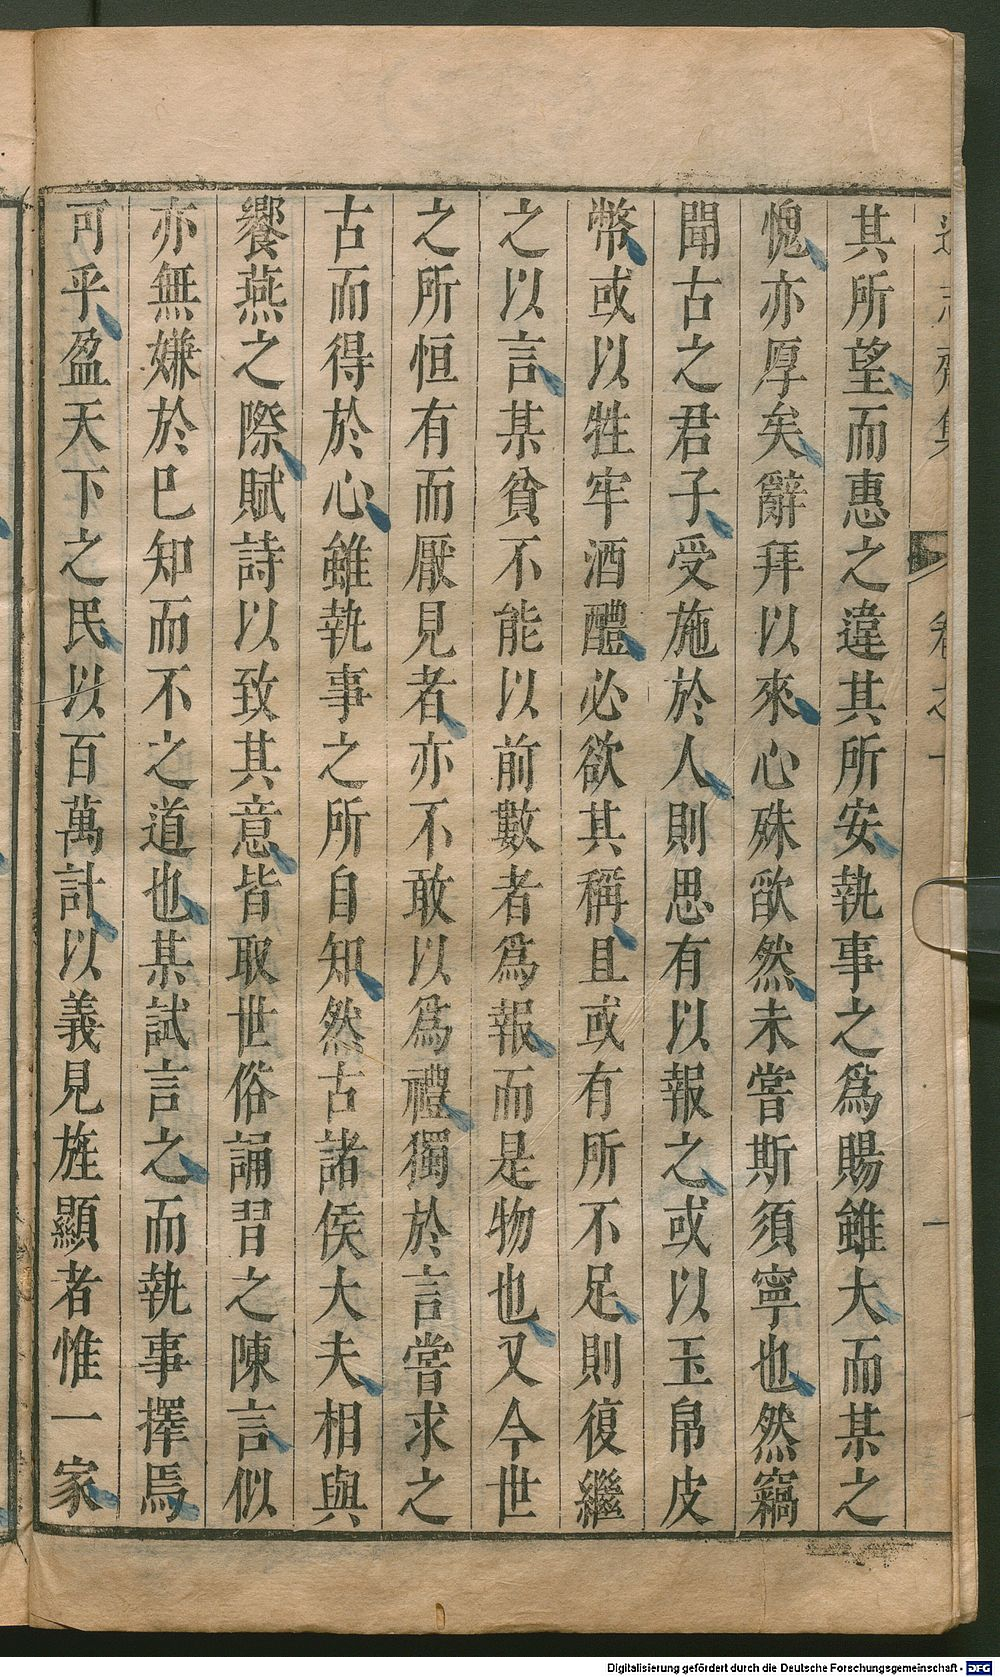 其所望而惠之違其所安執事之爲賜雖大而某之
愧亦厚矣辭拜以來心殊欿然未嘗斯須寧也然竊
聞古之君子受施於人則思有以報之或以玉帛皮
幣或以牲牢酒醴必欲其稱且或有所不足則復繼
之以言某貧不能以前數者爲報而是物也又今世
之所恒有而厭見者亦不敢以爲禮獨於言嘗求之
古而得於心雖執事之所自知然古諸侯大夫相與
饗燕之際賦詩以致其意皆取世俗誦習之陳言似
亦無嫌於巳知而不之道也某試言之而執事擇焉
可乎盈天下之民以百萬計以義見旌顯者惟一家
Digitalisierung gefördert durch die Deutsche Forschungsgemeinschaft - DFG